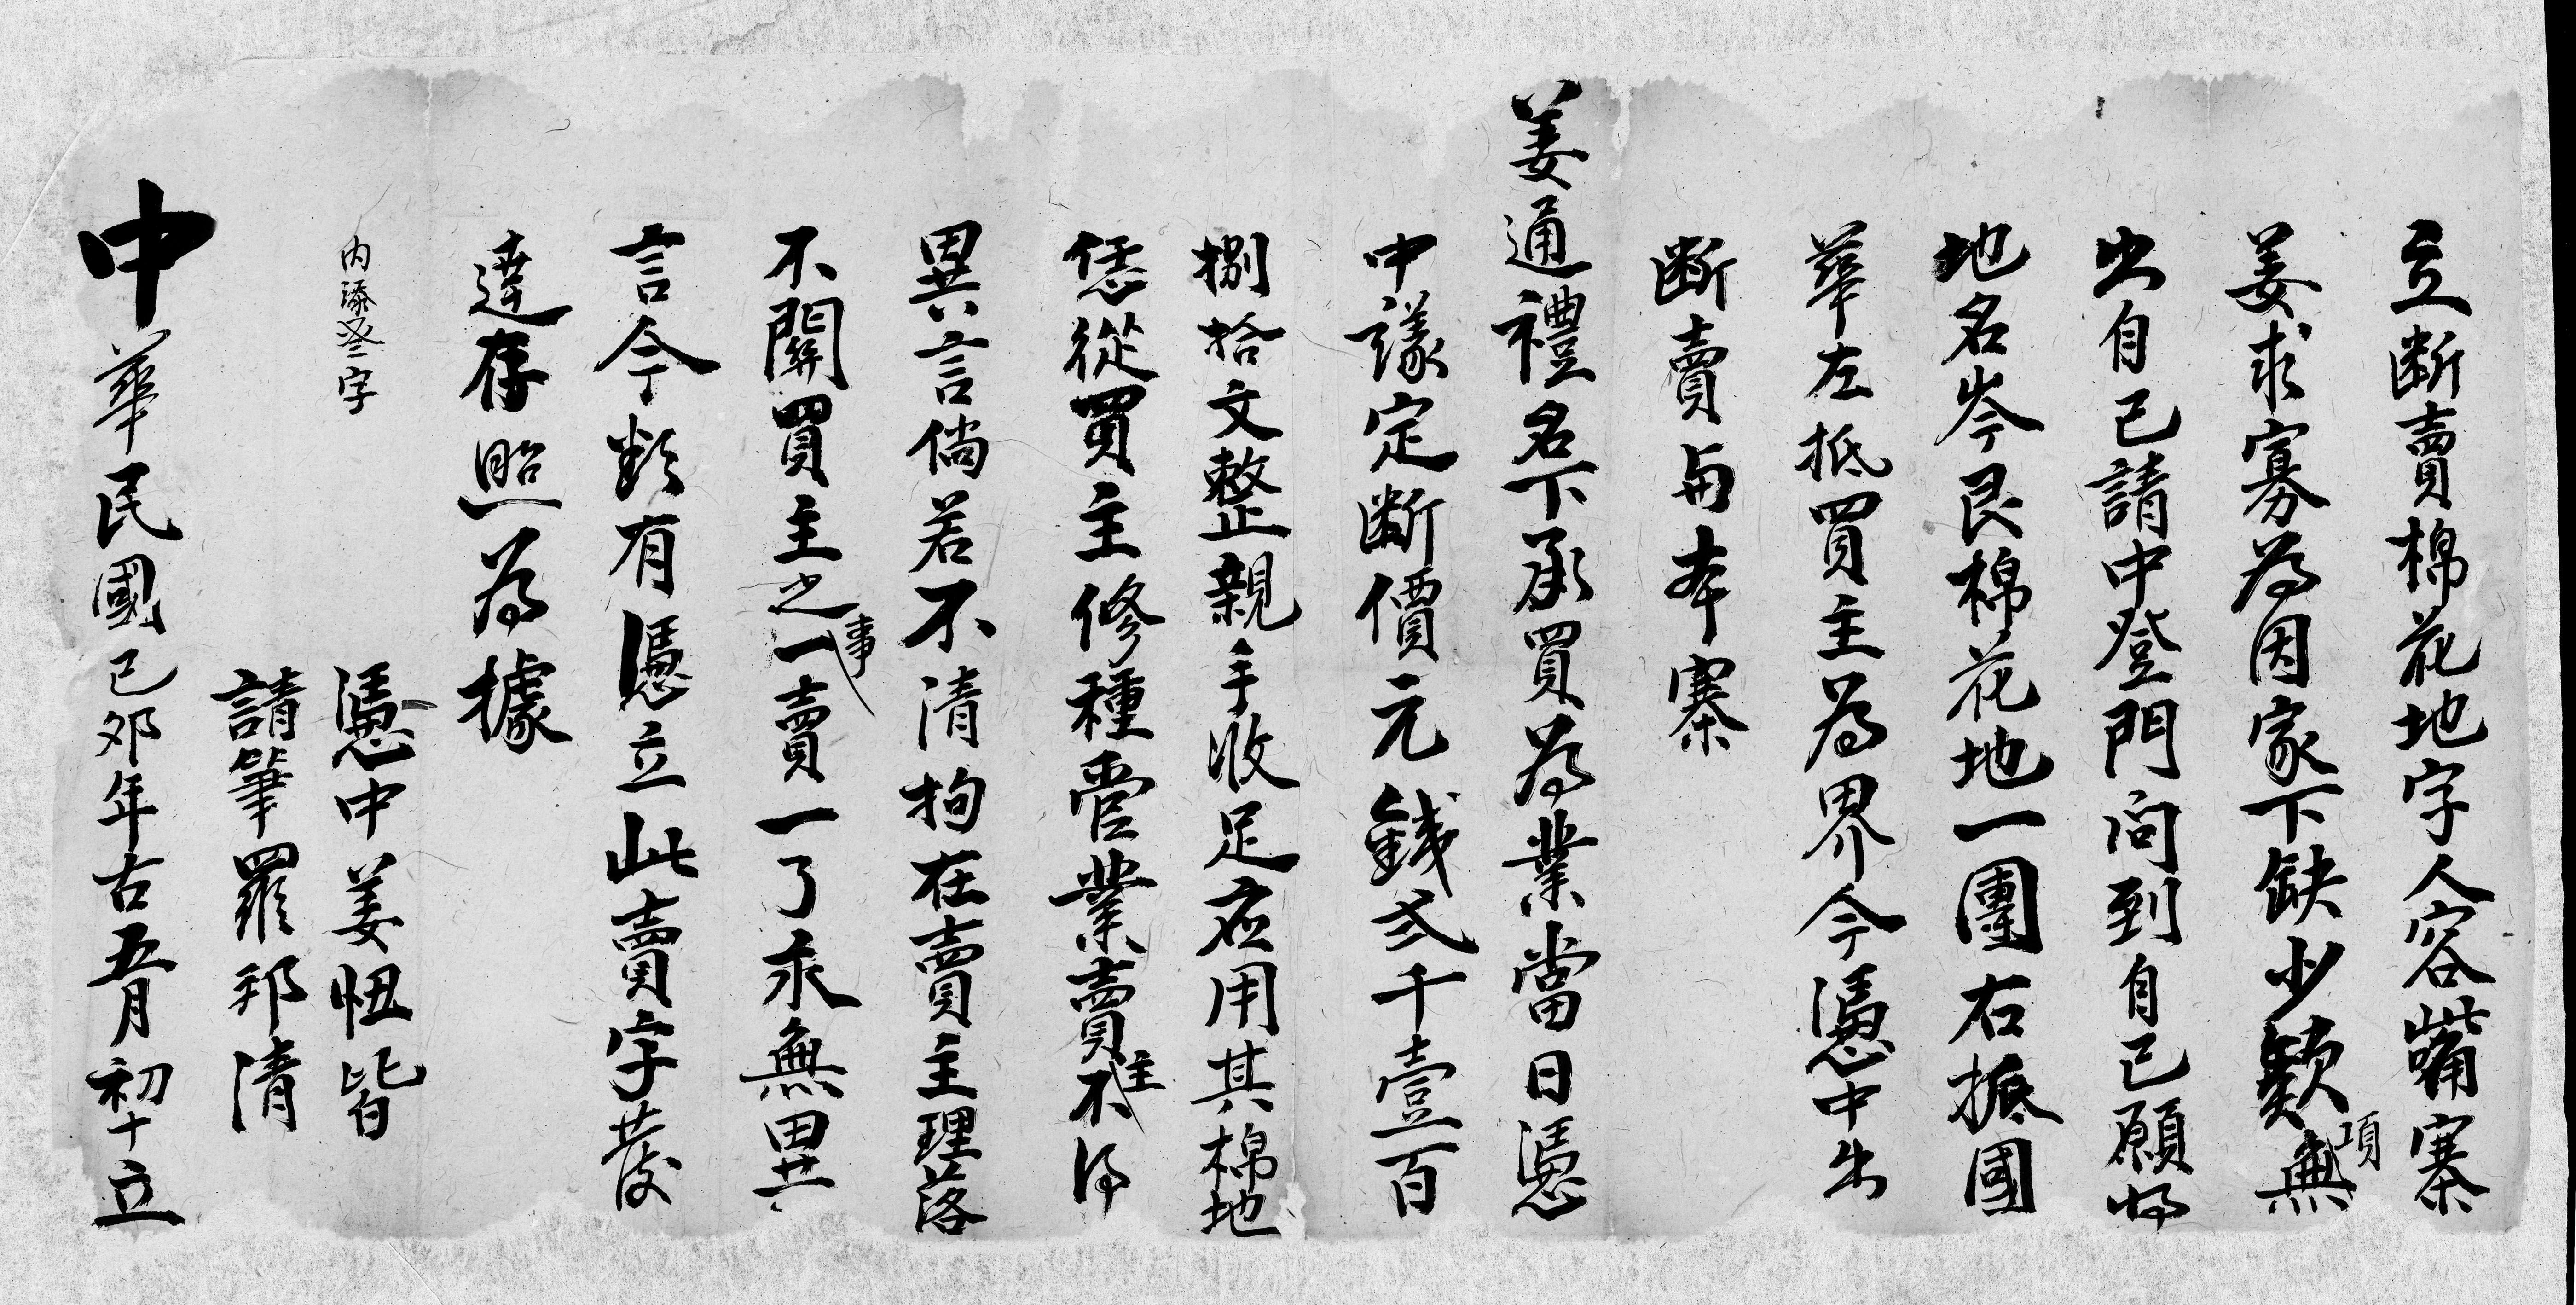 立断賣棉花地字人容嘴寨
姜求寡為因家下缺少欵項無
出自己請中登門问到自己願將
地名岑艮棉花地一團右抵國
華左抵買主為界今憑中出
断賣与本寨
姜通禮名下承買為業當日憑
中議定断價元錢弍千壹百
捌拾文整親手收足应用其棉地
恁從買主修種管業賣主不得
異言倘若不清拘在賣主理落
不関買主之事一賣一了永無異
言今欲有憑立此賣字發
達存照為據
内添叁字
憑中姜忸皆
請筆羅邦清
中華民國己夘年古五月初十立